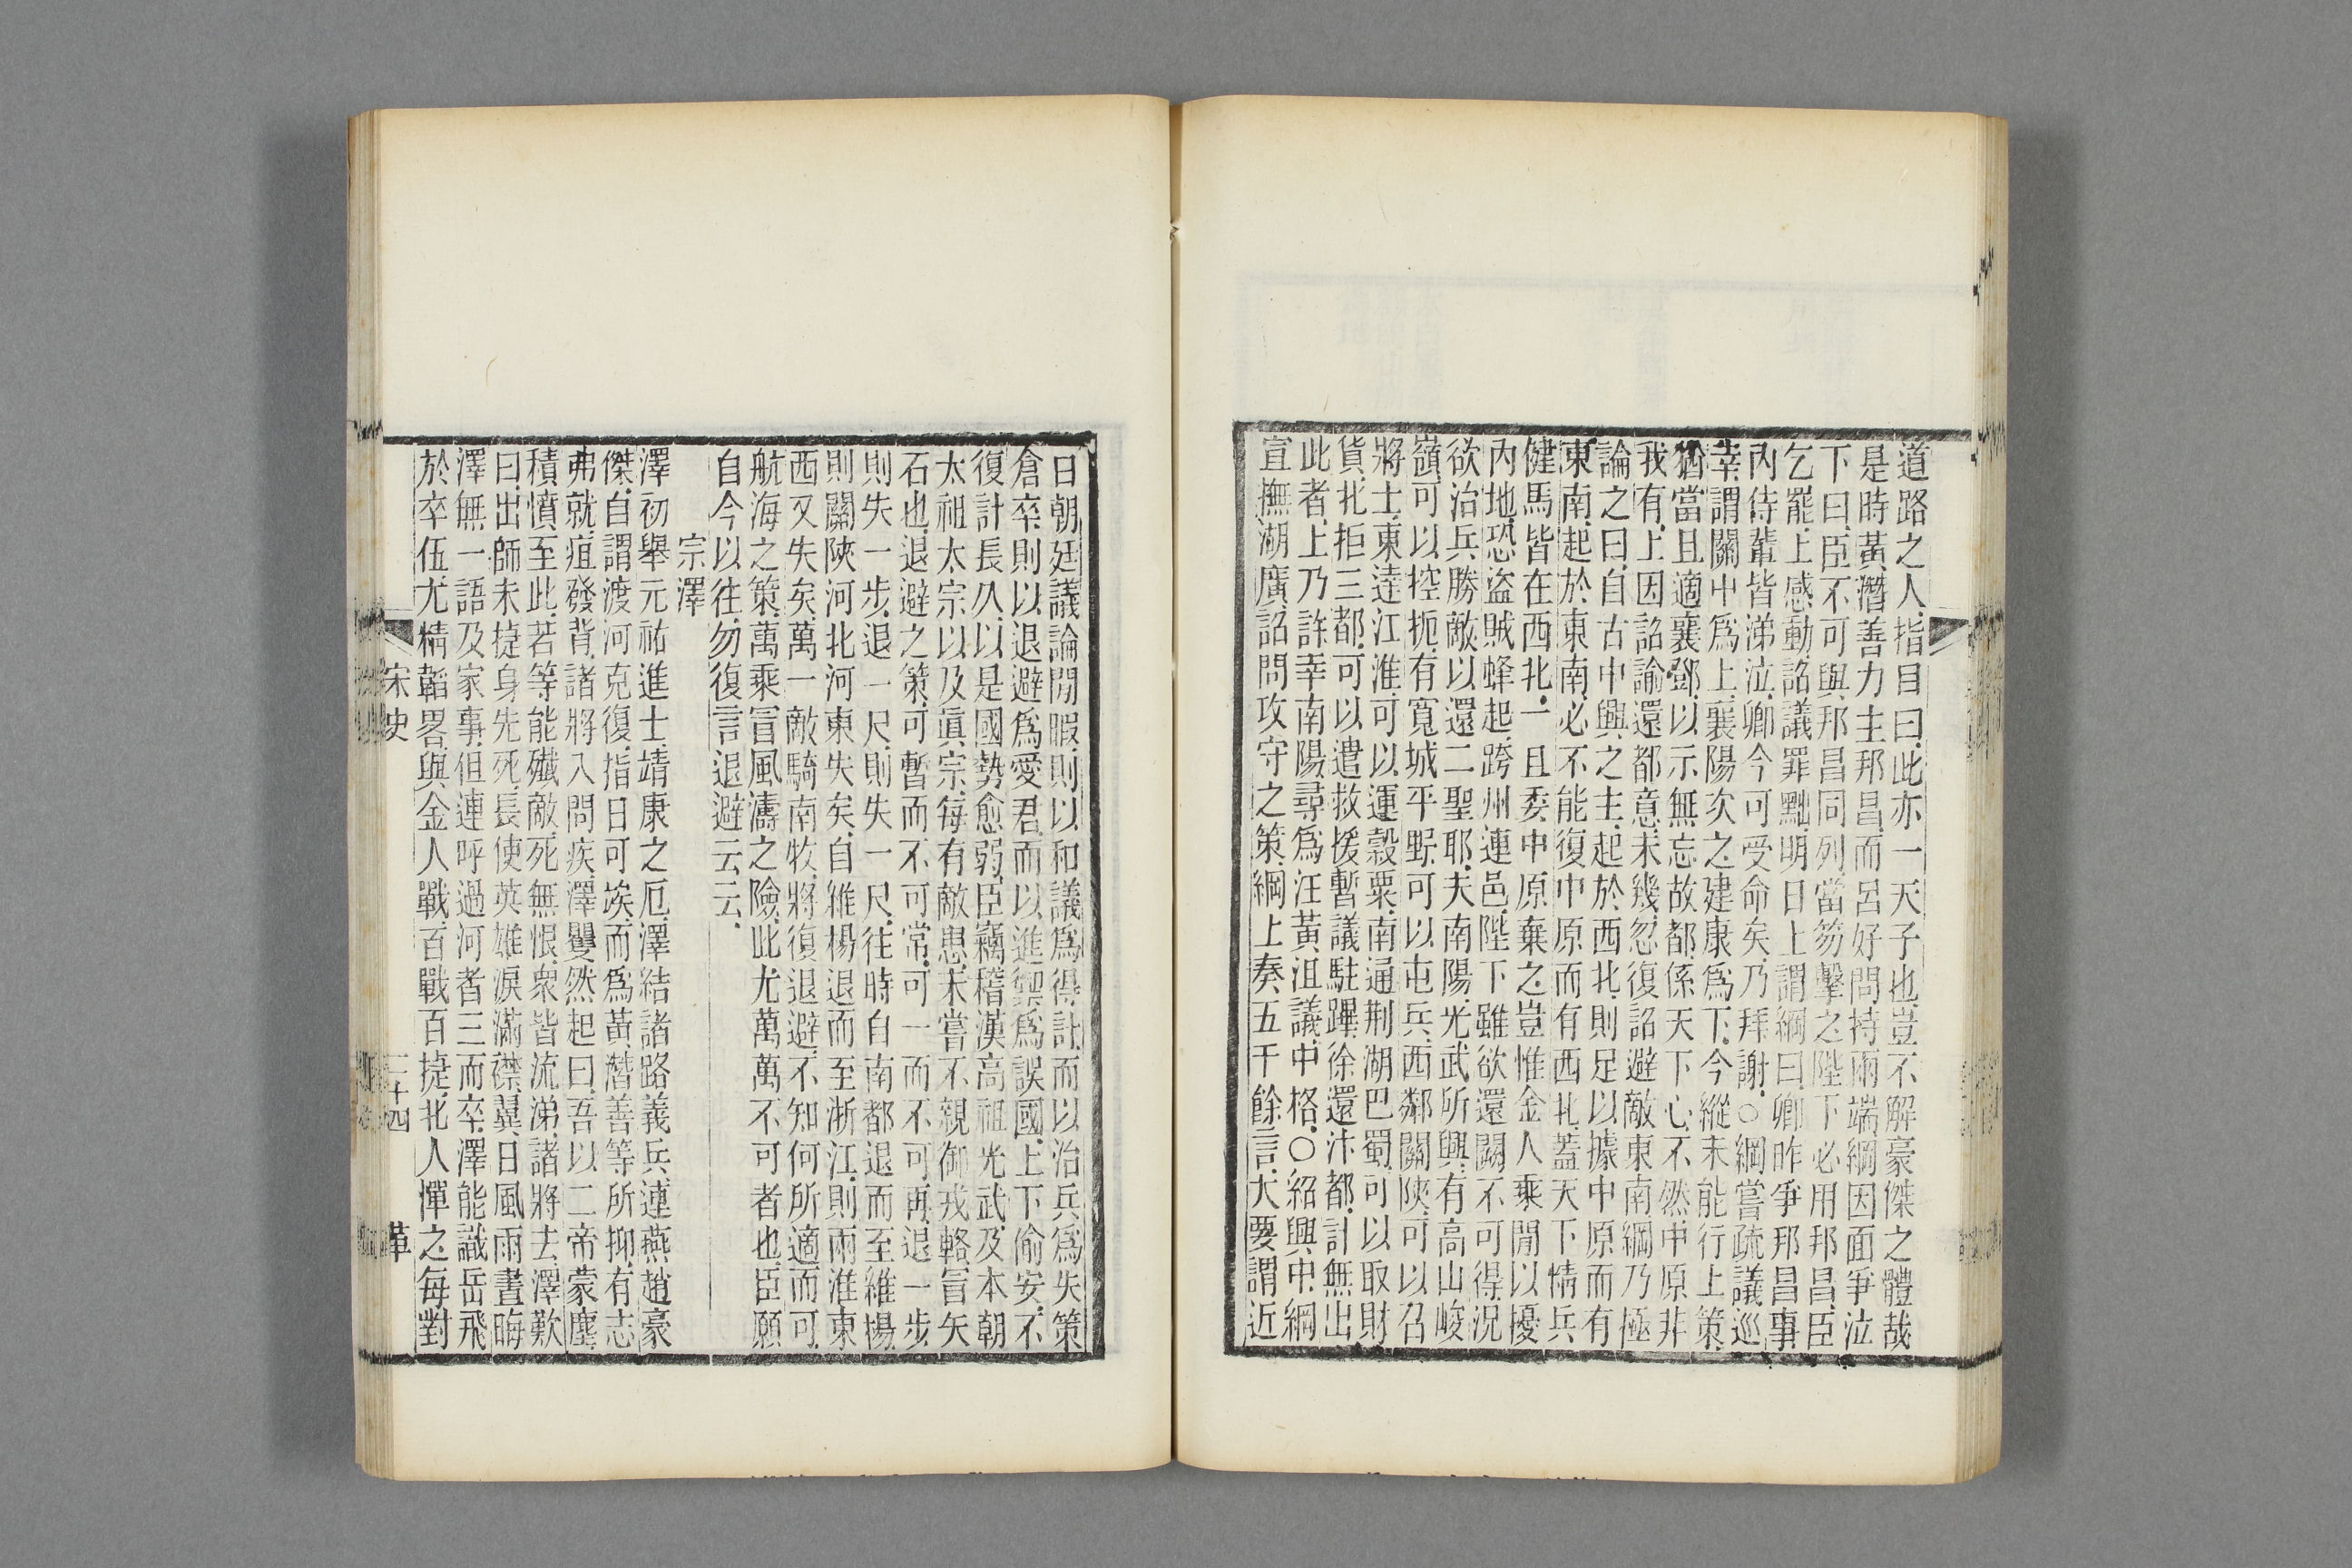 道路之人、指目曰、此亦一天子也、豈不解豪傑之體哉
是時黃潛善力主邦昌、而呂好問持兩端、綱因面爭泣
下曰、臣不可與邦昌同列、當笏擊之、陛下必用邦昌、臣
乞罷、上感動、詔議罪黜、明日上謂綱曰、卿昨爭邦昌事、
內侍輩皆涕泣、卿今可受命矣、乃拜謝、○綱嘗疏議巡
幸、謂關中爲上、襄陽次之、建康爲下、今縱未能行上策、
猶當且適襄鄧、以示無忘故都、係天下心、不然中原非
我有、上因詔諭還都意、未幾、忽復詔避敵東南、綱乃極
論之曰、自古中興之主、起於西北、則足以據中原而有
東南、起於東南、必不能復中原而有西北、蓋天下情兵
健馬皆在西北、一旦委中原棄之、豈惟金人乘閒以擾
內地、恐盜賊蜂起、跨州連邑、陛下雖欲還闕、不可得、況
欲治兵勝敵、以還二聖耶、夫南陽、光武所興、有高山峻
嶺、可以控扼、有寬城平野、可以屯兵、西鄰關陝、可以召
將士、東達江淮、可以運穀粟、南通荊湖巴蜀、可以取財
貨、北拒三都、可以遣救援、暫議駐蹕、徐還汴都、計無出
此者、上乃許幸南陽、尋爲汪黃沮議、中格、○紹興中、綱
宣撫湖廣、詔問攻守之策、綱上奏、五千餘言、大要謂近
日朝廷議論閒暇、則以和議爲得計、而以治兵爲失策
倉卒、則以退避爲愛君、而以進禦爲誤國、上下偷安、不
復計長久、以是國勢愈弱、臣竊稽漢高祖光武、及本朝
太祖太宗、以及眞宗、每有敵患、未嘗不親御戎輅、冒矢
石也、退避之策、可暫而不可常、可一而不可再、退一步
則失一步、退一尺、則失一尺、往時自南都退而至維楊、
則關陝河北河東失矣、自維楊退而至浙江、則兩淮東
西又失矣、萬一敵騎南牧、將復退避、不知何所適而可、
航海之策、萬乘冒風濤之險、此尤萬萬不可者也、臣願
自今以往、勿復言退避云云、
宗澤
澤初舉元祐進士、靖康之厄、澤結諸路義兵、連燕趙豪
傑、自謂渡河克復、指日可竢、而爲黃潛善等所抑、有志
弗就、疽發背、諸將入問疾、澤矍然起曰、吾以二帝蒙塵、
積憤至此、若等能殲敵、死無恨、衆皆流涕、諸將去、澤歎
曰、出師未捷身先死、長使英雄淚滿襟、翼日風雨晝晦
澤無一語及家事、但連呼過河者三而卒、澤能識岳飛
於卒伍、尤精韜畧、與金人戰、百戰百捷、北人憚之、每對
宋史
二十四
革